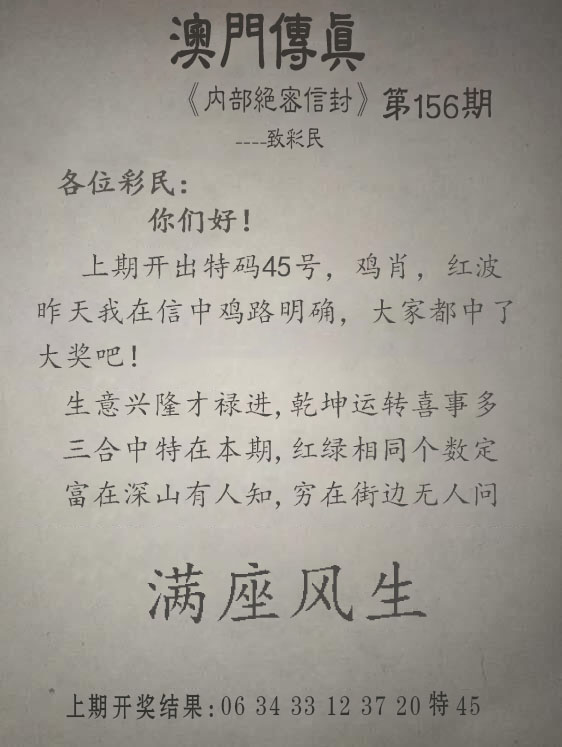 澳門傳眞
《内部絕密信封》第156期
----致彩民
各位彩民：
你们好！
上期开出特码45号，鸡肖，红波
昨天我在信中鸡路明确，大家都中了
大奖吧！
生意兴隆才禄进,乾坤运转喜事多
三合中特在本期,红绿相同个数定
富在深山有人知,穷在街边无人问
满座风生
上期开奖结果:06 34 33 12 37 20 特 45